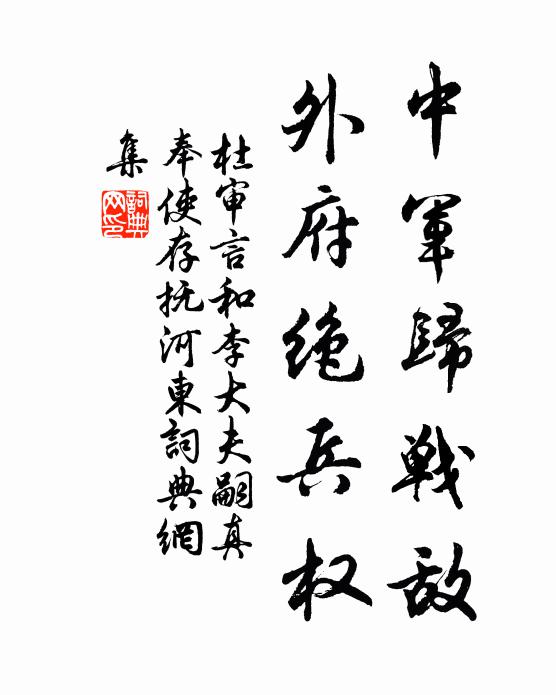 中軍歸戦敌
外府绝兵权
杜审言和李大夫嗣真
奉使存抚河東詞典網
集
詞典網印